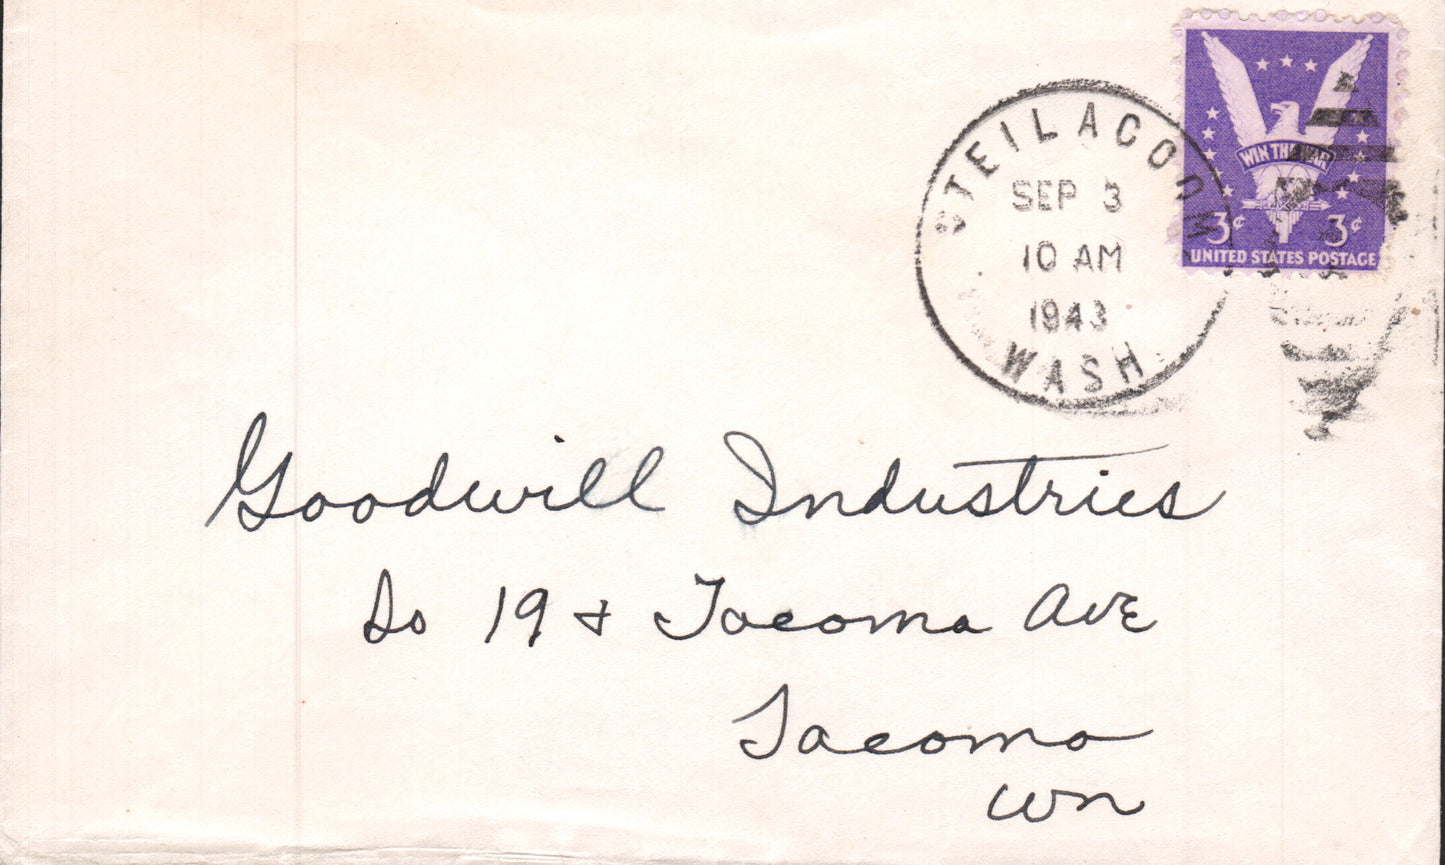 STEILACOOM
SEP 3
10 AM
1943
WASH.
WIN THE WAR
3¢ 3¢
UNITED STATES POSTAGE
Goodwill Industries
So 19 & Tacoma AVE
Tacoma
Wn